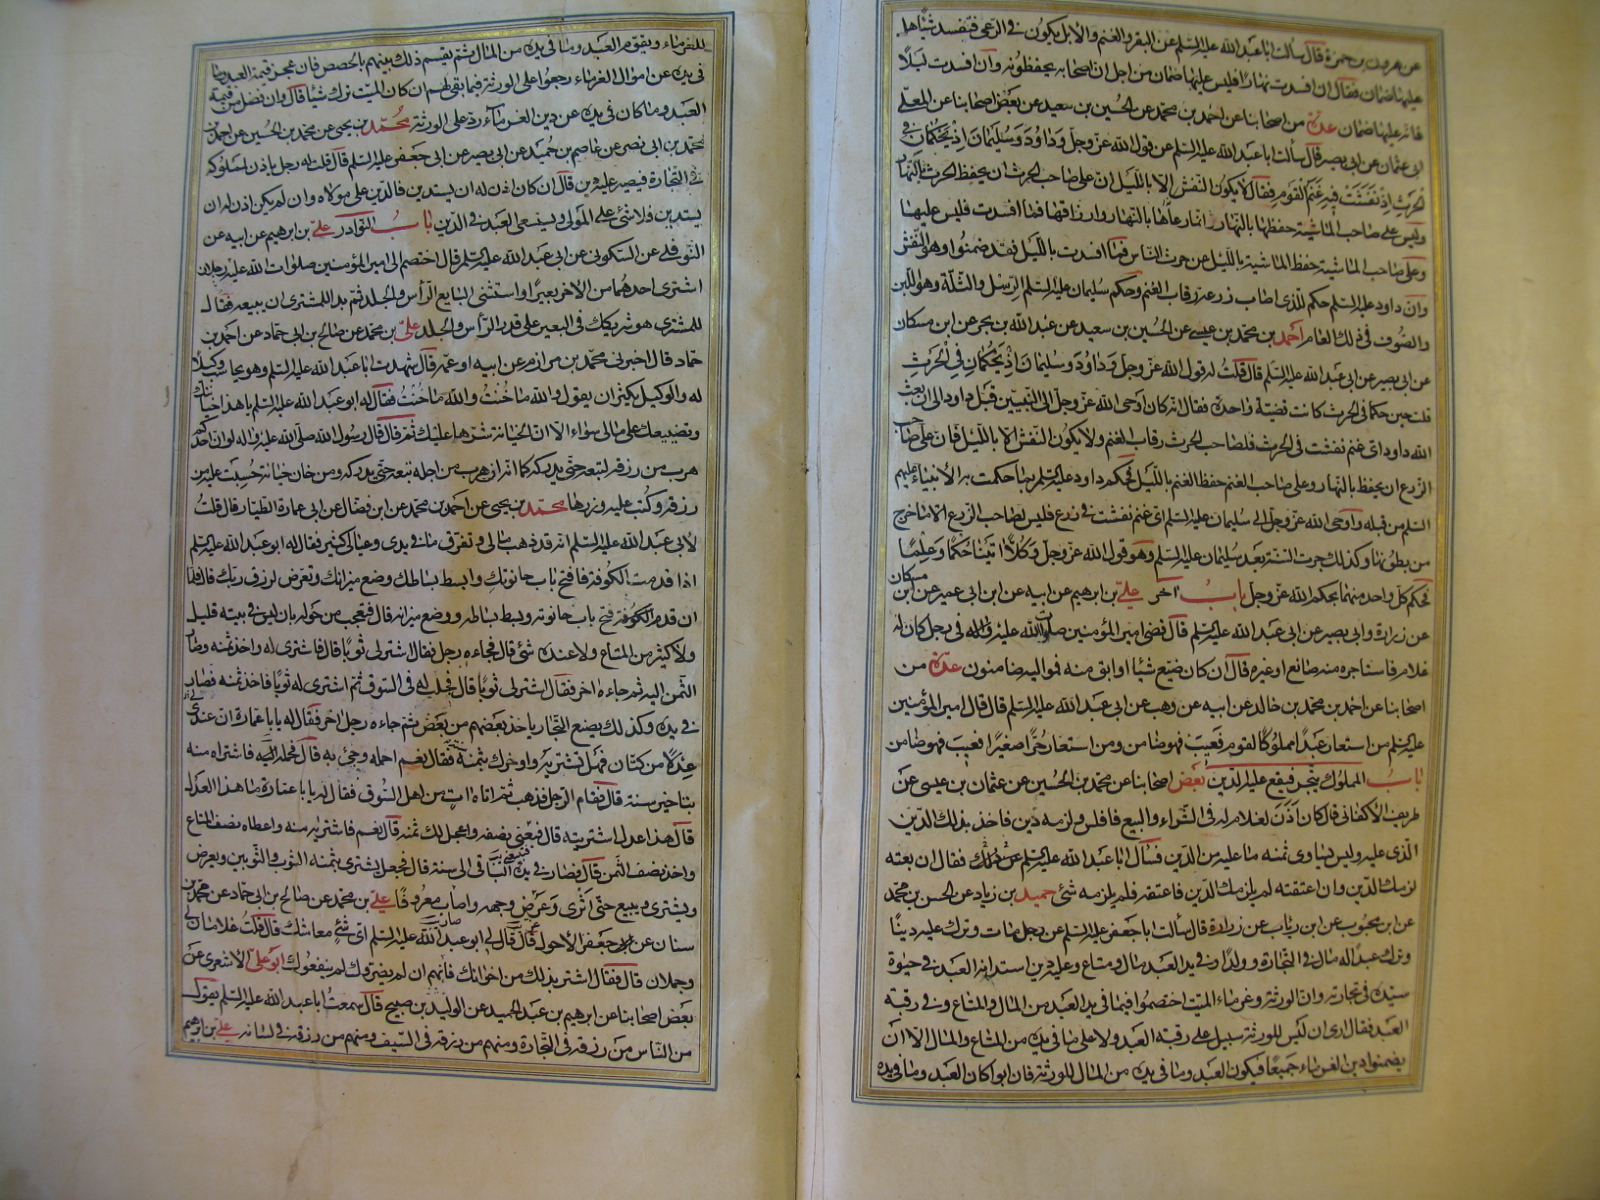 عن هرون بن حمزة قال سألت ابا عبد الله عليه السلم عن البقر والغنم والابل يكون في الرعى فتفسد شيئا هل
عليها ضمان فقال ان افسدت نهارا فليس عليها ضمان من اجل ان اصحابه يحفظونه وان افسدت ليلًا
فانه عليها ضمان عدة من اصحابنا عن احمد بن محمد عن الحسين بن سعيد عن بعض اصحابنا عن المعلى
ابى عثمان عن ابى بصير قال سألت ابا عبد الله عليه السلم عن قول الله عز وجل وداود وسليمان اذ يحكمان في
الحرث اذ نفشت فيه غنم القوم فقال لا يكون النفش الا بالليل ان على صاحب الحرث ان يحفظ الحرث بالنهار
وليس على صاحب الماشية حفظها بالنهار انما رعاها بالنهار وارزاقها فما افسدت فليس عليها
وعلى صاحب الماشية حفظ الماشية بالليل عن حرث الناس فما افسدت بالليل فقد ضمنوا وهو النفش
وان داود عليه السلم حكم للذى اصاب زرعه رقاب الغنم وحكم سليمان عليه السلم الرسل والثلة وهو اللبن
والصوف في ذلك العام احمد بن محمد بن عيسى عن الحسين بن سعيد عن عبد الله بن بحر عن ابن مسكان
عن ابى بصير عن ابى عبد الله عليه السلم قال قلت له قول الله عز وجل وداود وسليمان اذ يحكمان في الحرث
قلت حين حكما في الحرث كانت قضية واحدة فقال انه كان اوحى الله عز وجل الى النبيين قبل داود الى ان بعث
الله داود اى غنم نفشت في الحرث فلصاحب الحرث رقاب الغنم ولا يكون النفش الا بالليل فان على صاحب
الزرع ان يحفظ بالنهار وعلى صاحب الغنم حفظ الغنم بالليل فحكم داود عليه السلم بما حكمت به الانبياء عليهم
السلم من قبله واوحى الله عز وجل الى سليمان عليه السلم اى غنم نفشت في زرع فليس لصاحب الزرع الا ما خرج
من بطونها وكذلك جرت السنة بعد سليمان عليه السلم وهو قول الله عز وجل وكلا اتينا حكما وعلما
فحكم كل واحد منهما بحكم الله عز وجل باب آخر علي بن ابرهيم عن ابيه عن ابن ابى عمير عن ابن مسكان
عن زرارة وابى بصير عن ابى عبد الله عليه السلم قال قضى امير المؤمنين صلوات الله عليه واله في رجل كان له
غلام فاستاجره منه صانع او غيره قال ان كان ضيع شيئا او ابق منه فمواليه ضامنون عدة من
اصحابنا عن احمد بن محمد بن خالد عن ابيه عن وهب عن ابى عبد الله عليه السلم قال قال امير المؤمنين
عليه السلم من استعار عبدا مملوكا لقوم فعيب فهو ضامن ومن استعار حرا صغيرا فعيب فهو ضامن
باب المملوك يتجر فيقع عليه الدين بعض اصحابنا عن محمد بن الحسين عن عثمان بن عيسى عن
ظريف الاكفانى قال كان اذن لغلام له في الشراء والبيع فافلس ولزمه دين فاخذ بذلك الدين
الذى عليه وليس يساوى ثمنه ما عليه من الدين فسأل ابا عبد الله عليه السلم عن ذلك فقال ان بعته
لزمك الدين وان اعتقته لم يلزمك الدين فاعتقه فلم يلزمه شئ حميد بن زياد عن الحسن بن محمد
عن ابن محبوب عن ابن رئاب عن زرارة قال سألت ابا جعفر عليه السلم عن رجل مات وترك عليه دينا
وترك عبدا له مال في التجارة وولدا وفي يد العبد مال ومتاع وعليه دين استدانه العبد في حيوة
سيده في تجارته وان الورثة وغرماء الميت اختصموا فيما في يد العبد من المال والمتاع وفي رقبة
العبد فقال ارى ان ليس للورثة سبيل على رقبة العبد ولا على ما في يده من المتاع والمال الا ان
يضمنوا دين الغرماء جميعا فيكون العبد وما في يده من المال للورثة فان ابوا كان العبد وما في يده
للغرماء ويقوم العبد وما في يده من المال ثم يقسم ذلك بينهم بالحصص فان عجز قيمة العبد وما
في يده عن اموال الغرماء رجعوا على الورثة فيما بقى لهم ان كان الميت ترك شيئا قال وان فضل من قيمة
العبد وما كان في يده عن دين الغرماء رد على الورثة محمد بن يحيى عن محمد بن الحسين عن احمد بن
محمد بن ابى نصر عن عاصم بن حميد عن ابى بصير عن ابى جعفر عليه السلم قال قلت له رجل ياذن لمملوكه
في التجارة فيصير عليه دين قال ان كان اذن له ان يستدين فالدين على مولاه وان لم يكن اذن له ان
يستدين فلا شئ على المولى ويستسعى العبد في الدين باب النوادر علي بن ابرهيم عن ابيه عن
النوفلى عن السكونى عن ابى عبد الله عليه السلم قال اختصم الى امير المؤمنين صلوات الله عليه رجلان
اشترى احدهما من الاخر بعيرا واستثنى البايع الرأس والجلد ثم بدا للمشترى ان يبيعه فقال
للمشترى هو شريكك في البعير على قدر الرأس والجلد علي بن محمد عن صالح بن ابى حماد عن احمد بن
حماد قال اخبرنى محمد بن مرازم عن ابيه او عمه قال شهدت ابا عبد الله عليه السلم وهو يحاسب وكيلا
له والوكيل يكثر ان يقول والله ما خنت والله ما خنت فقال له ابو عبد الله عليه السلم يا هذا خيانتك
وتضييعك على مالى سواء الا ان الخيانة شرها عليك ثم قال قال رسول الله صلى الله عليه واله لو ان احدكم
هرب من رزقه لتبعه حتى يدركه كما انه ان هرب من اجله تبعه حتى يدركه ومن خان خيانة حسبت عليه من
رزقه وكتب عليه وزرها محمد بن يحيى عن احمد بن محمد عن ابن فضال عن ابى عمارة الطيار قال قلت
لابى عبد الله عليه السلم انه قد ذهب مالى وتفرق ما في يدى وعيالى كثير فقال له ابو عبد الله عليه السلم
اذا قدمت الكوفة فافتح باب حانوتك وابسط بساطك وضع ميزانك وتعرض لرزق ربك قال فلما
ان قدم الكوفة فتح باب حانوته وبسط بساطه ووضع ميزانه قال فتعجب من حوله بان ليس في بيته قليل
ولا كثير من المتاع ولا عنده شئ قال فجاءه رجل فقال اشتر لى ثوبا قال فاشترى له واخذ ثمنه وصار
الثمن اليه ثم جاءه اخر فقال اشتر لى ثوبا قال فجلب له في السوق ثم اشترى له ثوبا فاخذ ثمنه فصار
في يده وكذلك يصنع التجار ياخذ بعضهم من بعض ثم جاءه رجل اخر فقال له يا با عمارة ان عندى
عدلا من كتان فهل تشتريه واوخرك بثمنه سنة فقال نعم احمله وجئ به قال فحمله اليه فاشتراه منه
بتاخير سنة قال فقام الرجل فذهب ثم اتاه ات من اهل السوق فقال له يا با عمارة ما هذا العدل
قال هذا عدل اشتريته قال فبعنى نصفه واعجل لك ثمنه قال نعم فاشتراه منه واعطاه نصف المتاع
واخذ نصف الثمن قال فصار في يده الباقى الى سنة قال فجعل يشترى بثمنه الثوب والثوبين ويعرض
ويشترى ويبيع حتى اثرى وعرض وجهه واصاب معروفا علي بن محمد عن صالح بن ابى حماد عن محمد بن
سنان عن ابى جعفر الاحول قال قال لى ابو عبد الله عليه السلم اى شئ معاشك قال قلت غلامان لى
وجملان قال فقال استتر بذلك من اخوانك فانهم ان لم يضروك لم ينفعوك ابو علي الاشعرى عن
بعض اصحابنا عن ابرهيم بن عبد الحميد عن الوليد بن صبيح قال سمعت ابا عبد الله عليه السلم يقول
من الناس من رزقه في التجارة ومنهم من رزقه في السيف ومنهم من رزقه في لسانه علي بن ابرهيم